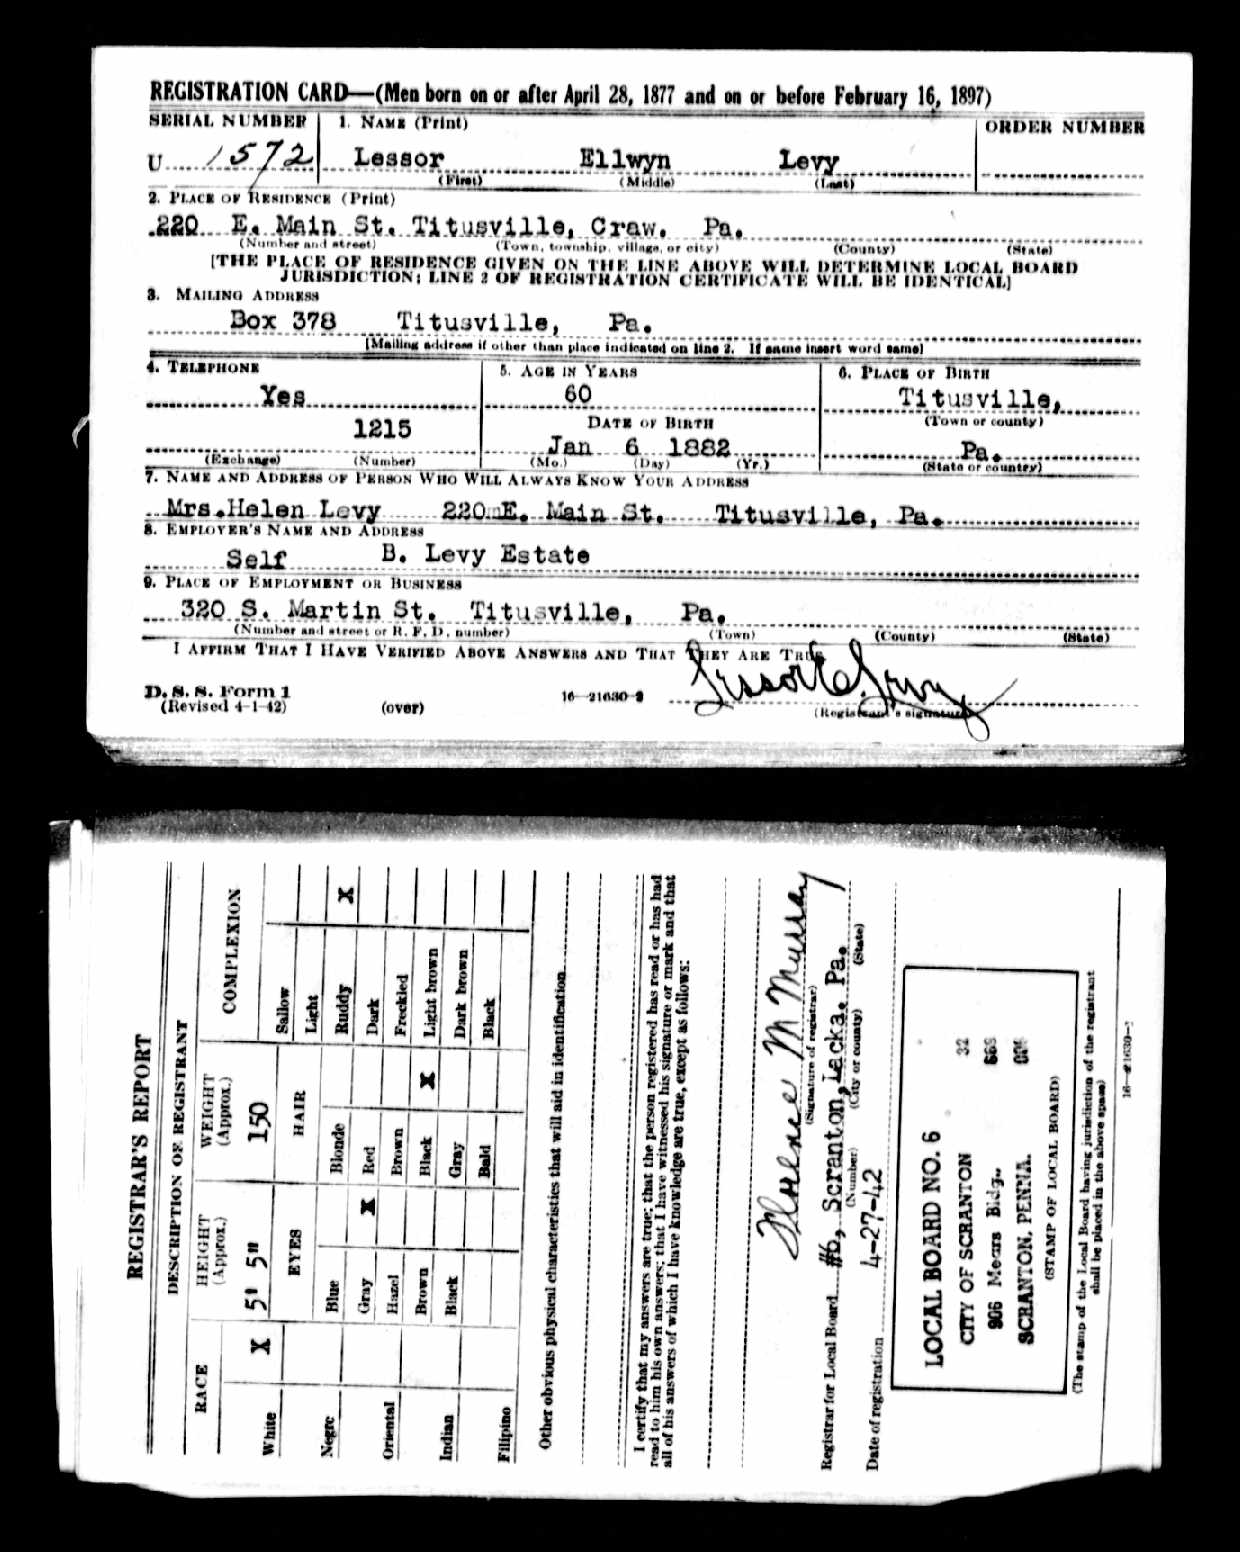 REGISTRATION CARD—(Men born on or after April 28, 1877 and on or before February 16, 1897)
SERIAL NUMBER 1. NAME (Print) ORDER NUMBER
U 1572 Lessor Ellwyn Levy
(First) (Middle) (Last)
2. PLACE OF RESIDENCE (Print)
220 E. Main St. Titusville, Craw. Pa.
(Number and street) (Town, township, village, or city) (County) (State)
[THE PLACE OF RESIDENCE GIVEN ON THE LINE ABOVE WILL DETERMINE LOCAL BOARD
JURISDICTION; LINE 2 OF REGISTRATION CERTIFICATE WILL BE IDENTICAL]
3. MAILING ADDRESS
Box 378 Titusville, Pa.
[Mailing address if other than place indicated on line 2. If same insert word same]
4. TELEPHONE 5. AGE IN YEARS 6. PLACE OF BIRTH
Yes 60 Titusville,
DATE OF BIRTH (Town or county)
1215 Jan 6 1882 Pa.
(Exchange) (Number) (Mo.) (Day) (Yr.) (State or country)
7. NAME AND ADDRESS OF PERSON WHO WILL ALWAYS KNOW YOUR ADDRESS
Mrs.Helen Levy 220 E. Main St. Titusville, Pa.
8. EMPLOYER'S NAME AND ADDRESS
Self B. Levy Estate
9. PLACE OF EMPLOYMENT OR BUSINESS
320 S. Martin St. Titusville, Pa.
(Number and street or R. F. D. number) (Town) (County) (State)
I AFFIRM THAT I HAVE VERIFIED ABOVE ANSWERS AND THAT THEY ARE TRUE
Lessor E. Levy
D. S. S. Form 1
(Revised 4-1-42) (over) 16—21630-2 (Registrant's signature)
REGISTRAR'S REPORT
DESCRIPTION OF REGISTRANT
RACE HEIGHT (Approx.) WEIGHT (Approx.) COMPLEXION
White X 5' 5" 150 Sallow
EYES HAIR Light
Negro Blue Blonde Ruddy X
Gray X Red Dark
Oriental Hazel Brown Freckled
Brown Black X Light brown
Indian Black Gray Dark brown
Bald Black
Filipino
Other obvious physical characteristics that will aid in identification
I certify that my answers are true; that the person registered has read or has had
read to him his own answers; that I have witnessed his signature or mark and that
all of his answers of which I have knowledge are true, except as follows:
Florence M Murray
(Signature of registrar)
Registrar for Local Board #6, Scranton, Lacka. Pa.
(Number) (City or county) (State)
Date of registration 4-27-42
LOCAL BOARD NO. 6
CITY OF SCRANTON 32
906 Mears Bldg.
SCRANTON, PENNA.
(STAMP OF LOCAL BOARD)
(The stamp of the Local Board having jurisdiction of the registrant
shall be placed in the above space)